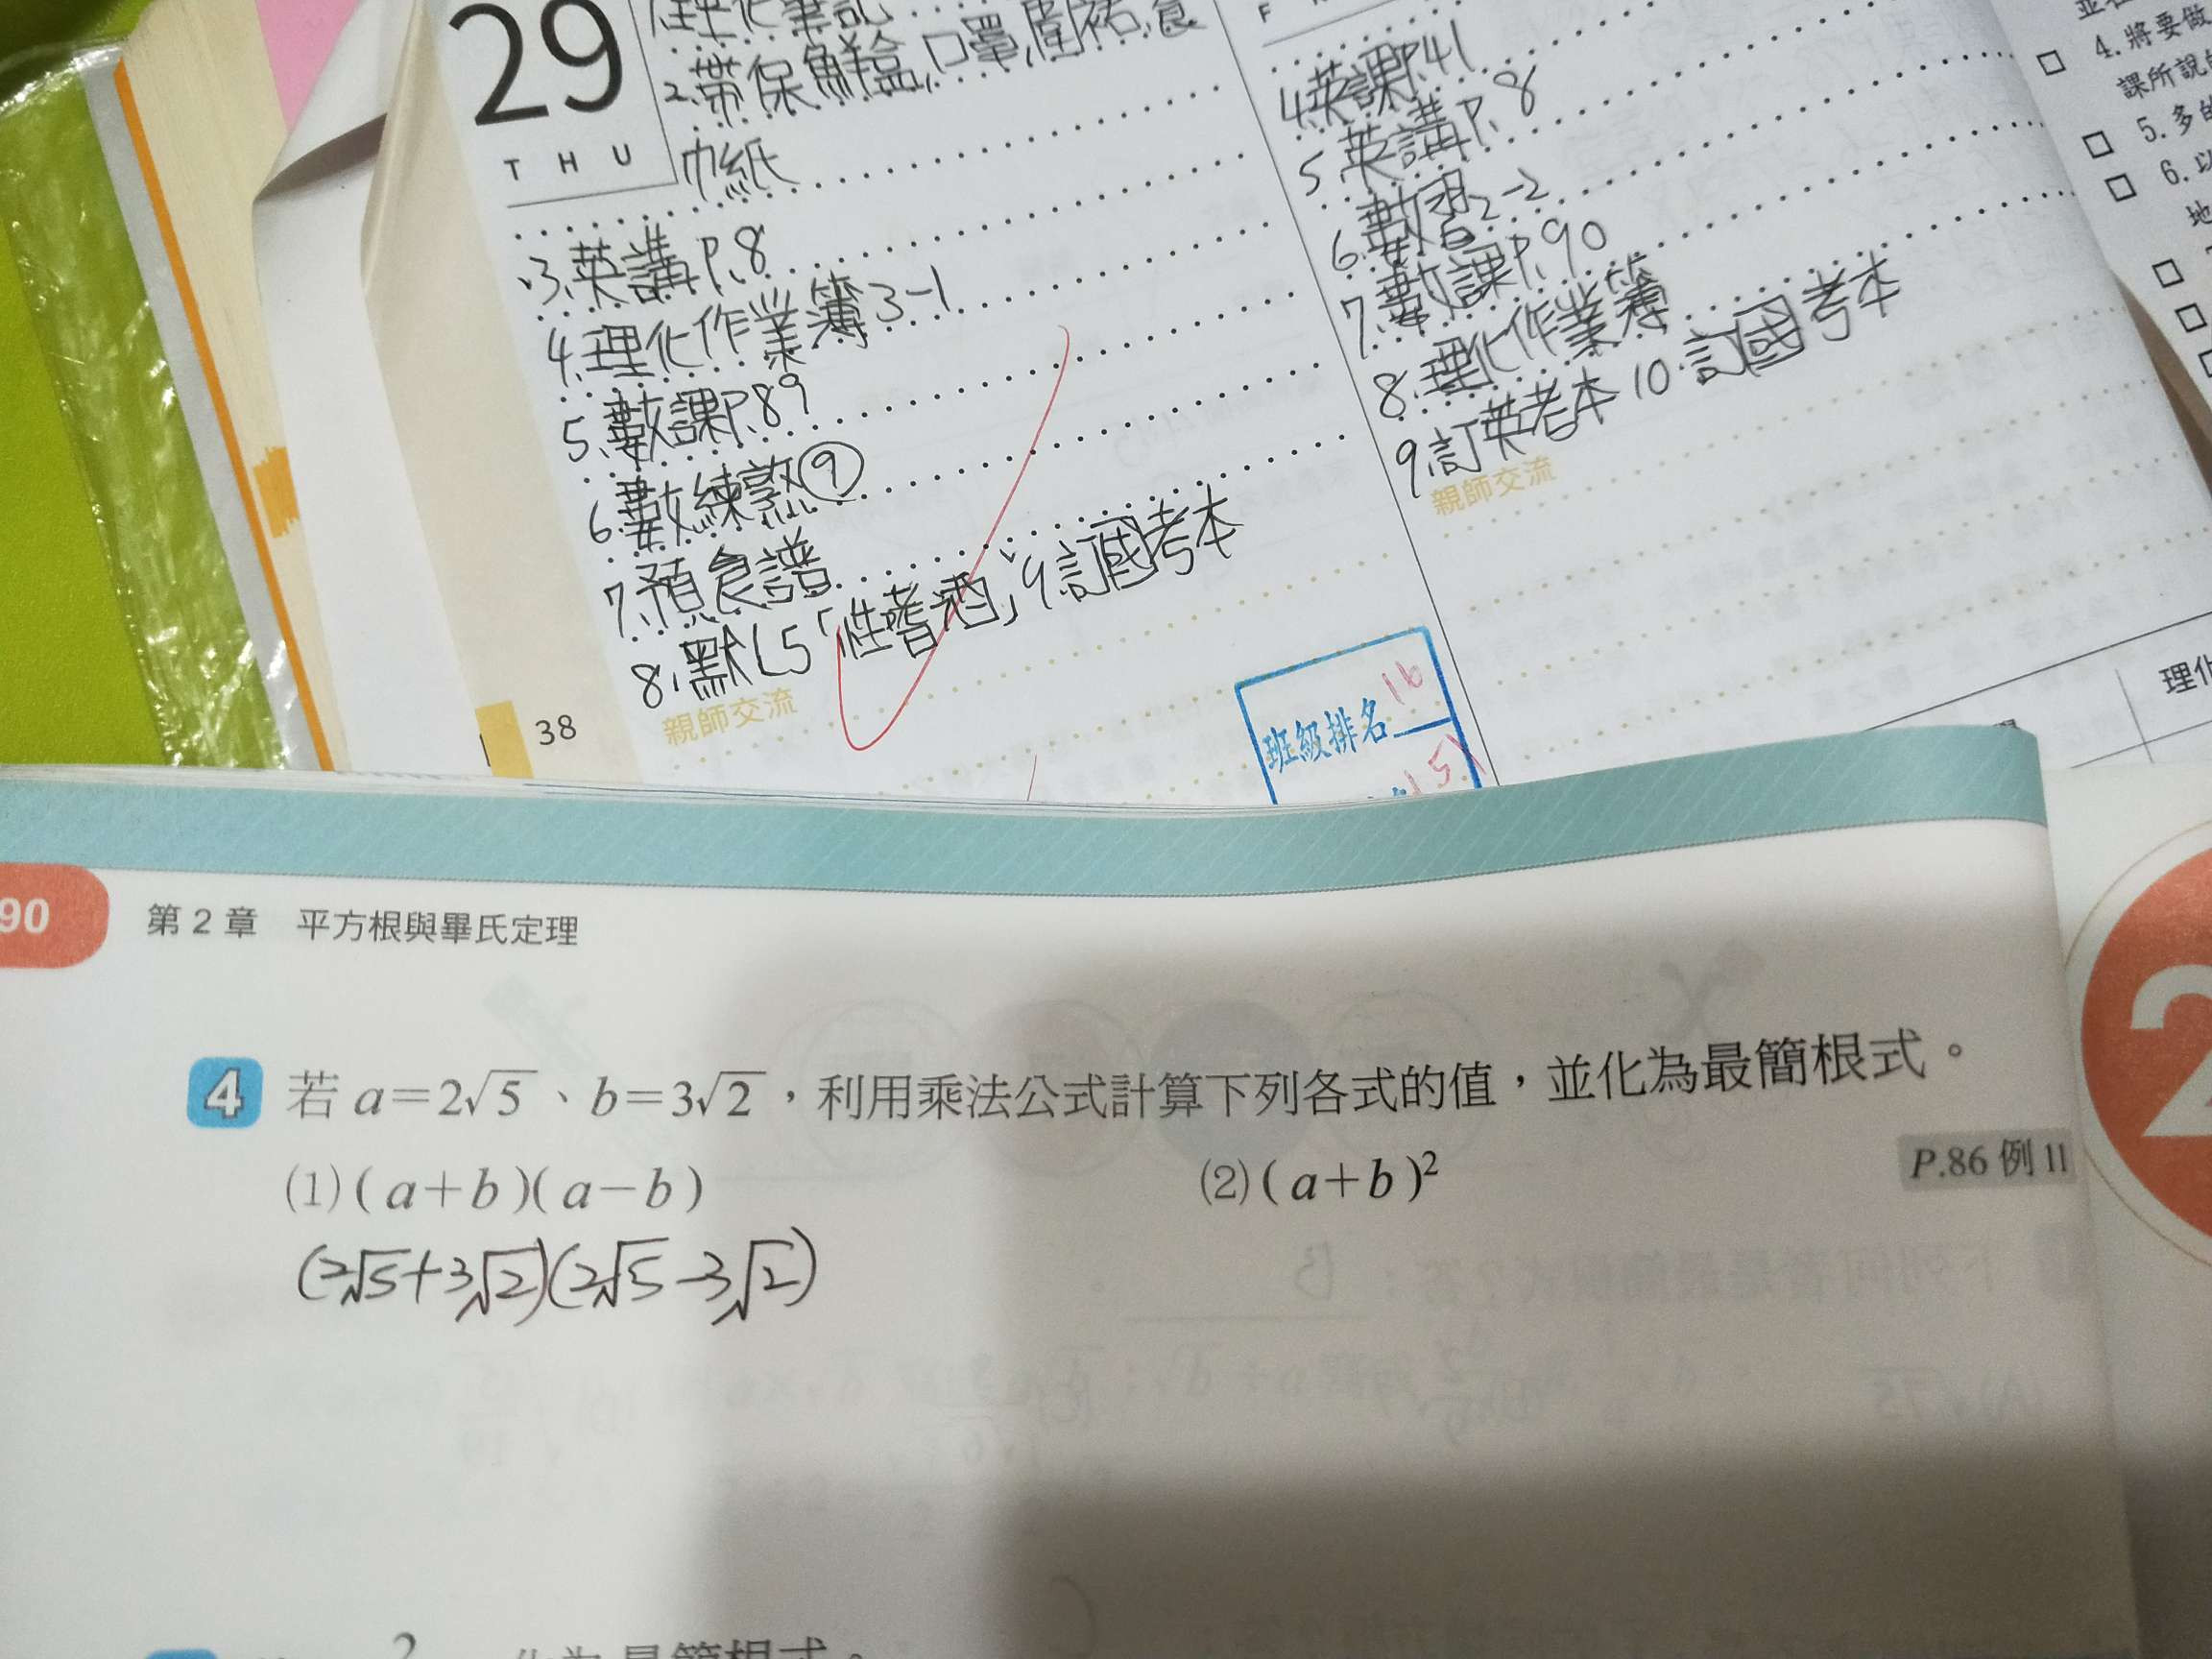 29
THU
理化筆記
2.帶保鮮盒,口罩,圍裙,食
巾紙
3.英講P.8
4.理化作業簿3-1
5.數課P.89
6.數練熟⑨
7.預食譜
8.默L5「性嗜酒」9.訂國考本
親師交流
38
班級排名 16
F
4.英課P.41
5.英講P.8
6.數習2-2
7.數課P.90
8.理化作業簿
9.訂英考本 10.訂國考本
親師交流
4.將要做
課所說
5.多
6.以
地
理化
90
第2章 平方根與畢氏定理
4 若 a=2√5、b=3√2,利用乘法公式計算下列各式的值,並化為最簡根式。
P.86 例 11
(1)(a+b)(a-b) (2)(a+b)²
(2√5+3√2)(2√5-3√2)
2
2
最簡根式。